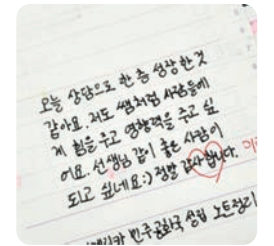 오늘 상담으로 한 층 성장한 것
같아요. 저도 쌤처럼 사람들에
게 힘을 주고 영향력을 주고 싶
어요. 선생님 같이 좋은 사람이
되고 싶네요:) 정말 감사합니다.
민주공화국 성립 노트정리